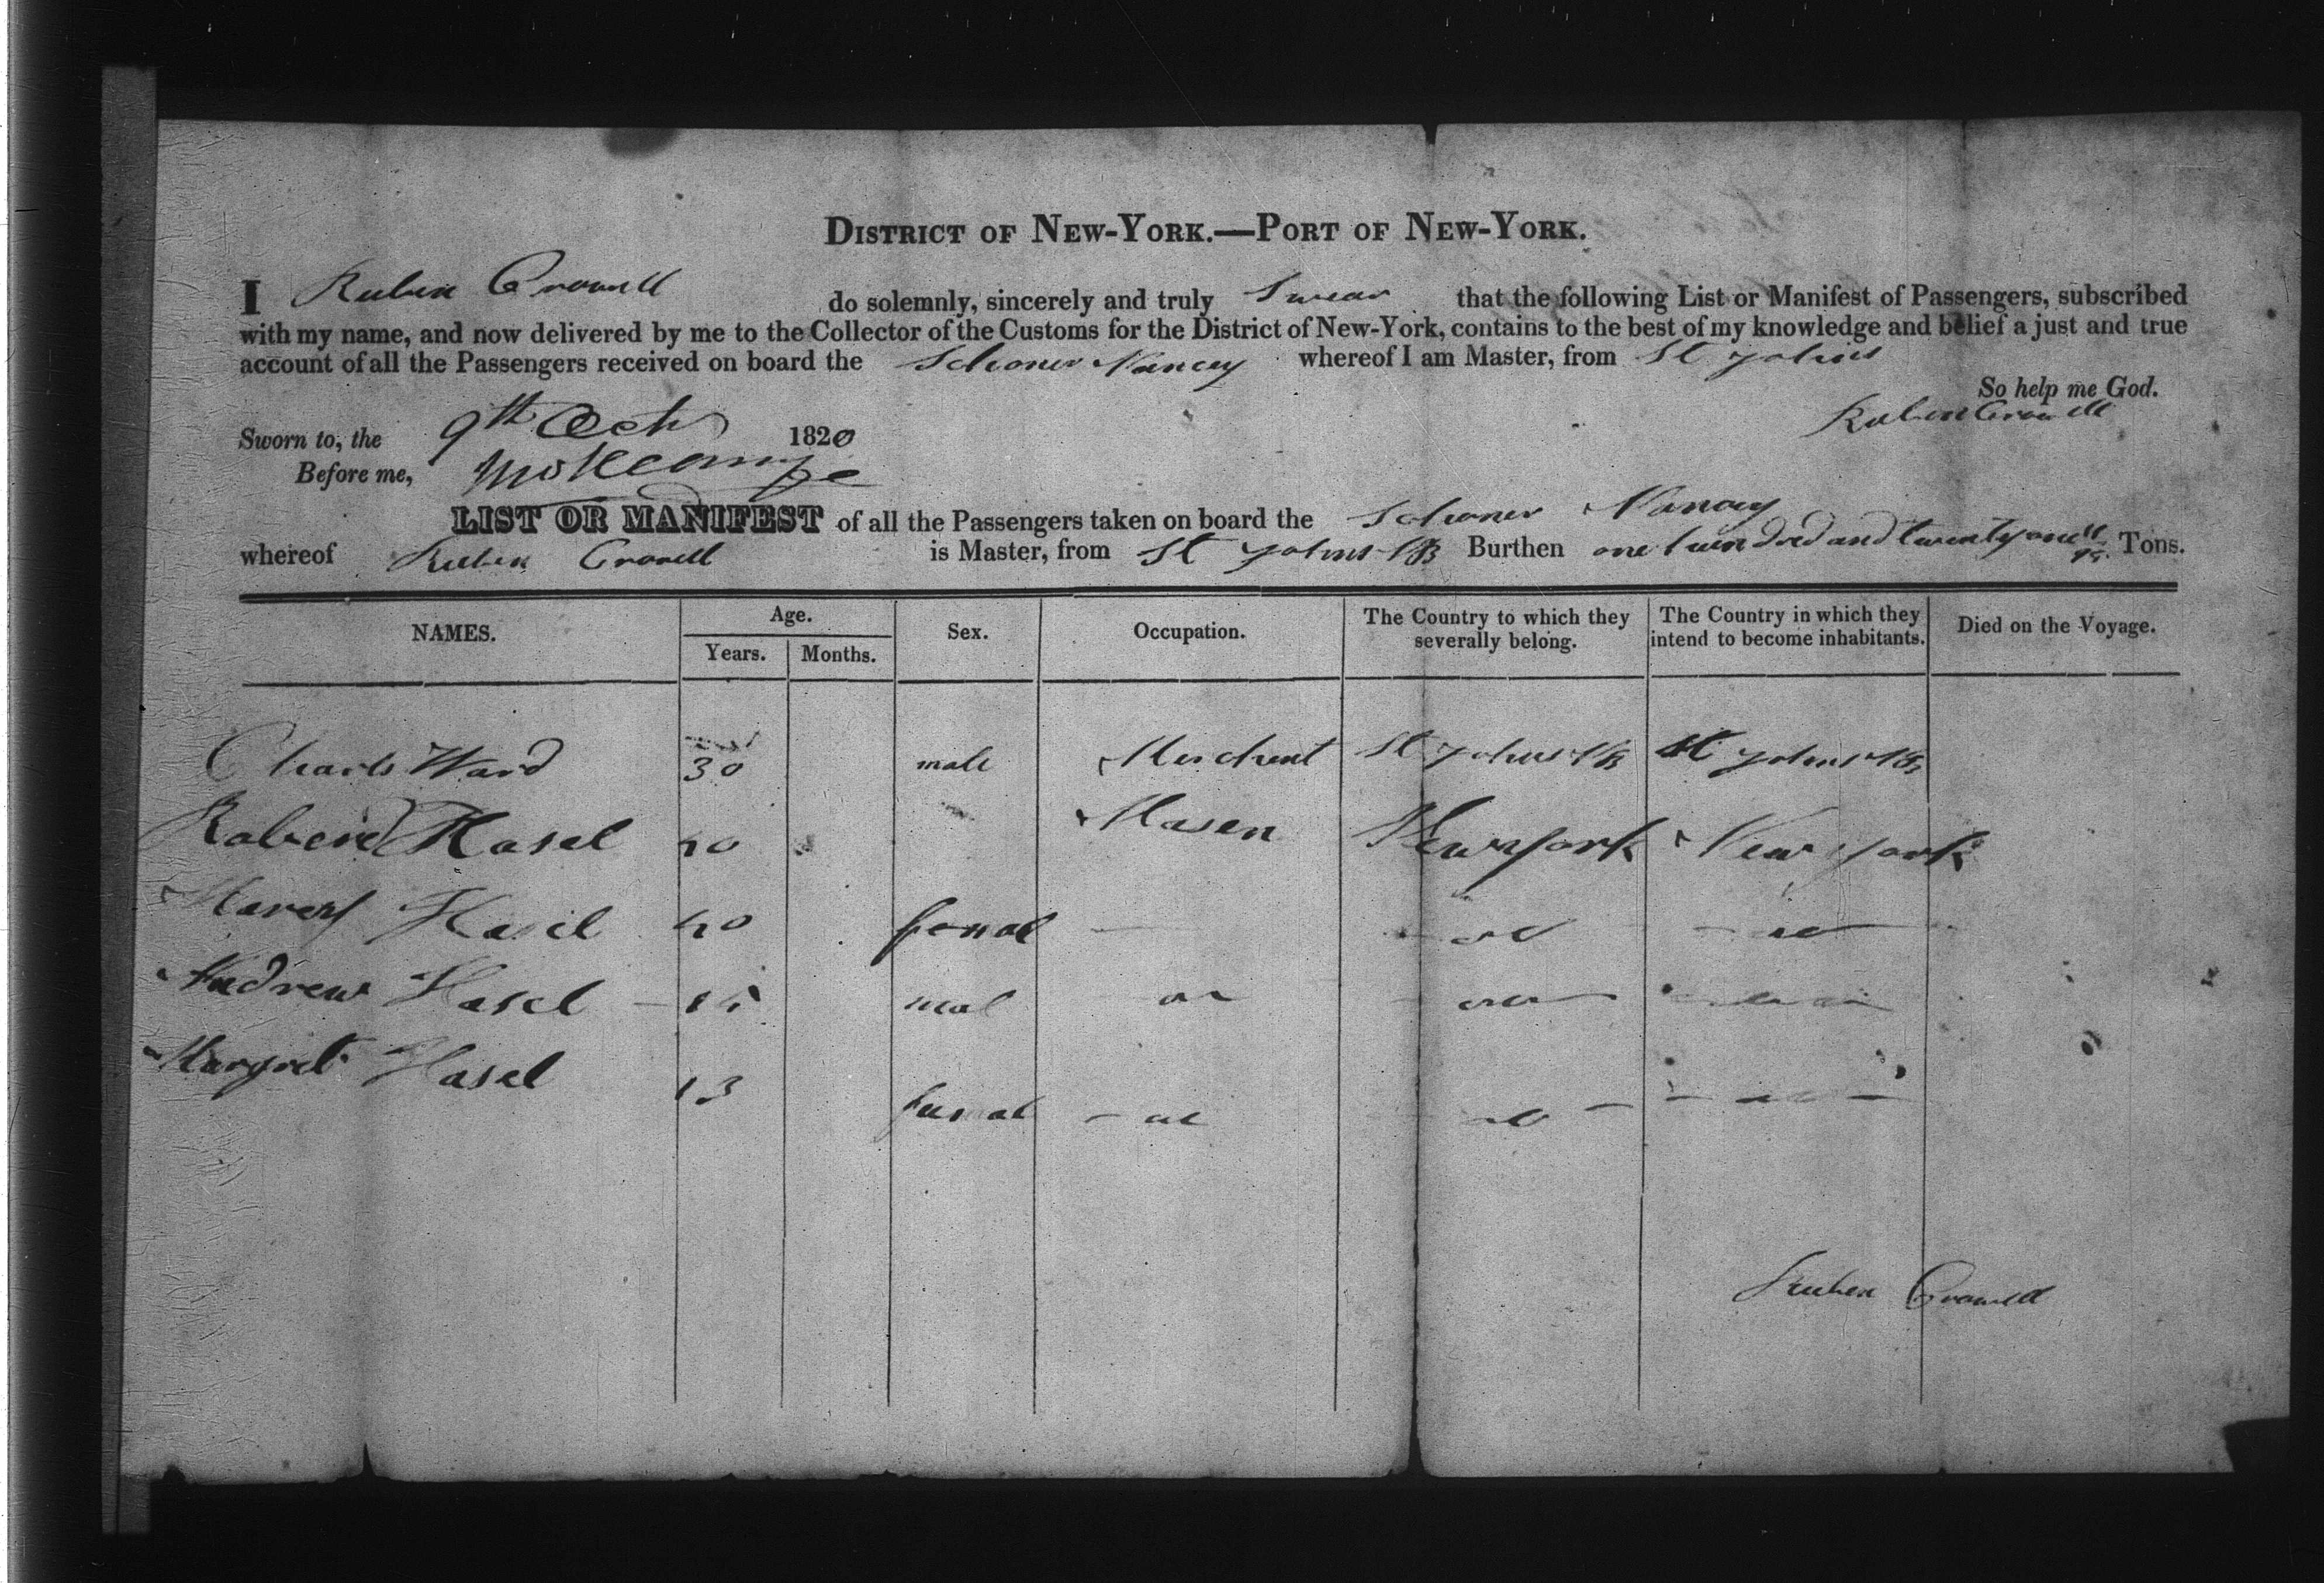 DISTRICT OF NEW-YORK.—PORT OF NEW-YORK.
I Ruben Crowell do solemnly, sincerely and truly Swear that the following List or Manifest of Passengers, subscribed
with my name, and now delivered by me to the Collector of the Customs for the District of New-York, contains to the best of my knowledge and belief a just and true
account of all the Passengers received on board the Schoner Nancy whereof I am Master, from St Johns
So help me God.
Sworn to, the 9th Octr 1820 Ruben Crowell
Before me,
LIST OR MANIFEST of all the Passengers taken on board the Schoner Nancy
whereof Reuben Crowell is Master, from St Johns NB Burthen one hundred and twenty one Tons.
NAMES. Age. Sex. Occupation. The Country to which they severally belong. The Country in which they intend to become inhabitants. Died on the Voyage.
Years. Months.
Charls Ward 30 male Merchent St Johns NB St Johns NB
Hasel 40 Masen New york New york
Hasel 40 femal
Andrew Hasel 15 mal
Margret Hasel 13 femal
Reuben Crowell